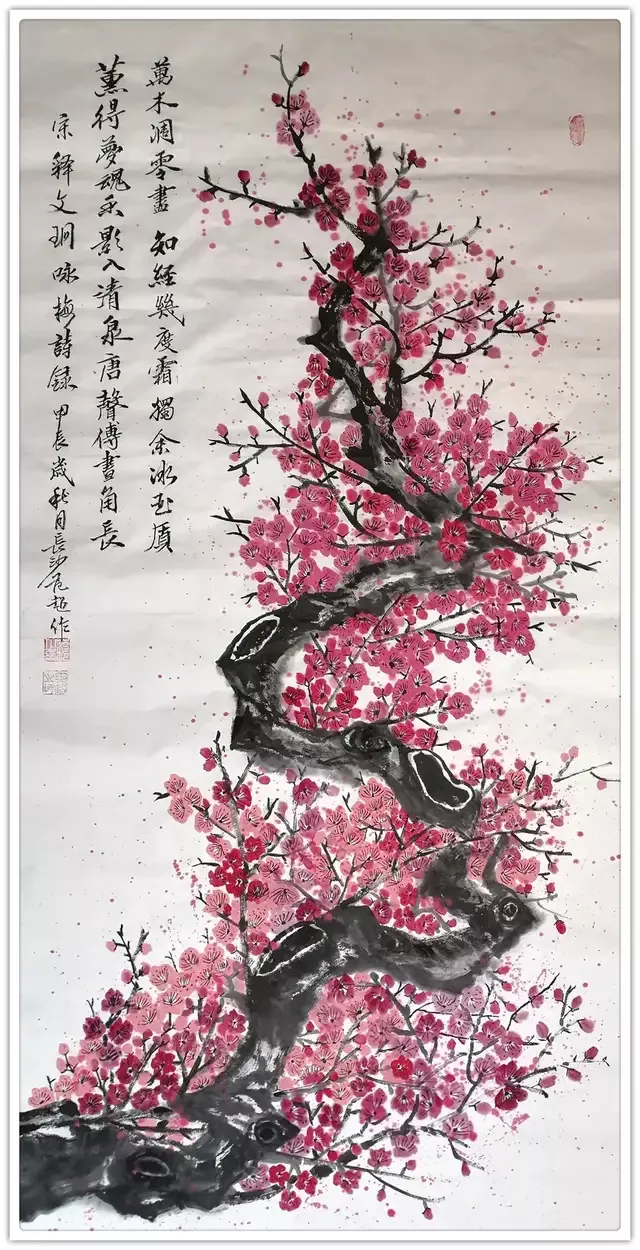 萬木凋零盡 知經幾度霜 獨余冰玉質
薰得夢魂香影入清泉唐聲傳畫角長
宋釋文珦咏梅詩録 甲辰歲秋月長沙危超作